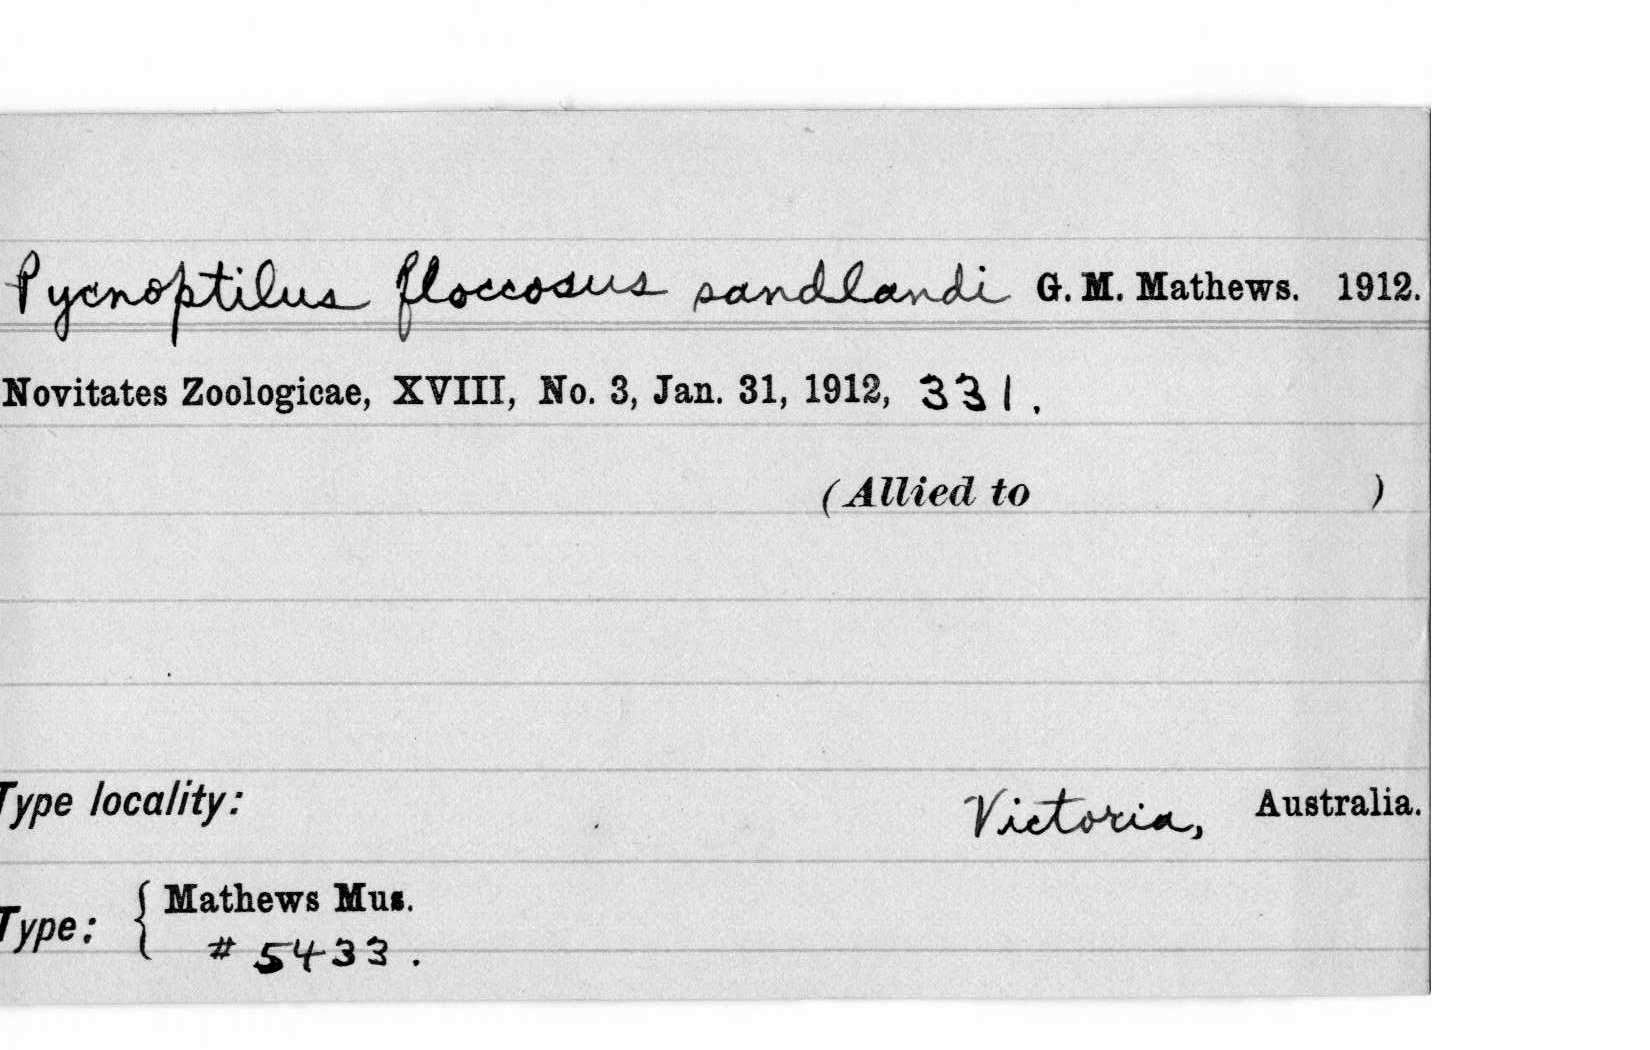 Pycnoptilus floccosus sandlandi G. M. Mathews. 1912.
Novitates Zoologicae, XVIII, No. 3, Jan. 31, 1912, 331.
(Allied to )
Type locality: Victoria, Australia.
Type: { Mathews Mus.
# 5433.